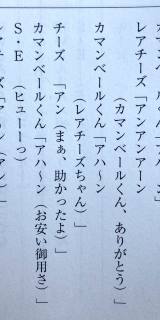 レアチーズ「アンアンアーン
（カマンベールくん、ありがとう）」
カマンベールくん「アハ〜ン
（レアチーズちゃん）」
チーズ　「アン（まぁ、助かったよ）」
カマンベールくん「アハ〜ン（お安い御用さ）」
S・E　（ヒューーっ）